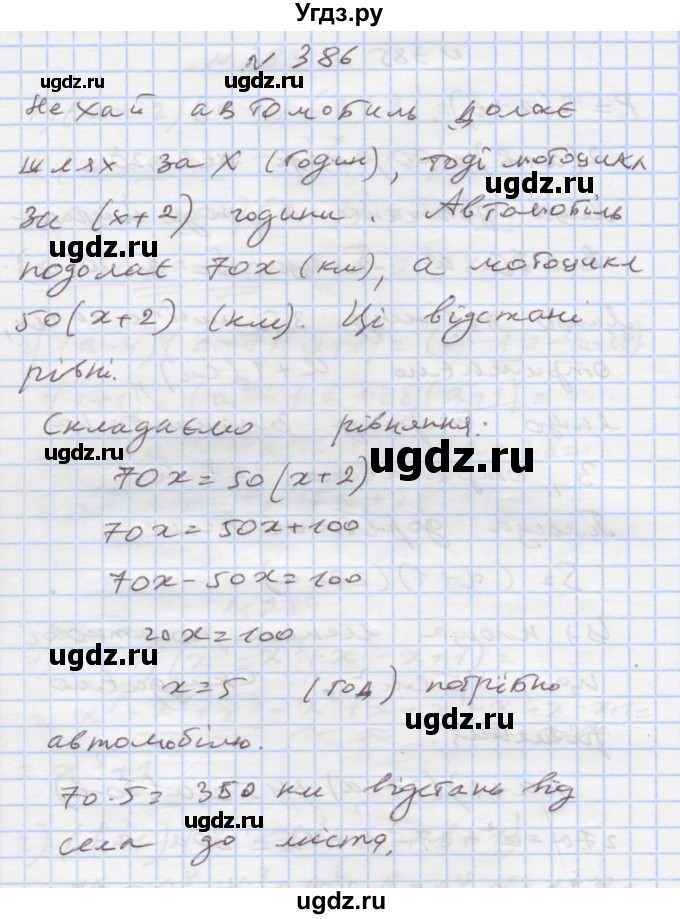 Угдз.ру
N 386
ugdz.ru ugdz.ru
Нехай автомобиль долає
шлях за х (годин), тоді мотоцикл
ugdz.ru
за (х+2) години. Автомобіль
ugdz.ru
подолає 70х (км), а мотоцикл
50(х+2) (км). Ці відстані
рівні.
Складаємо рівняння:
ugdz.ru ugdz.ru
70х=50(х+2)
70х=50х+100
70х-50х=100
20х=100
ugdz.ru
х=5 (год) потрібно
ugdz.ru
автомобілю.
70·5=350 км відстань від
ugdz.ru
села до міста.
Угдз.ру